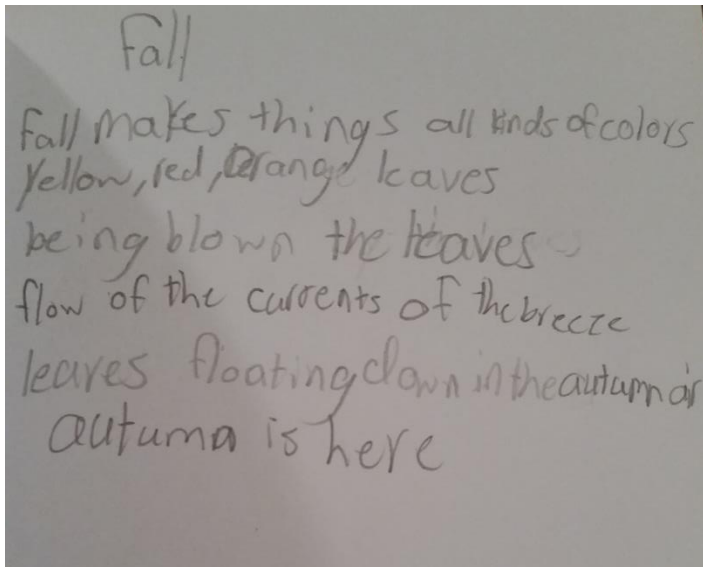 Fall
Fall makes things all kinds of colors
Yellow, red, Orange leaves
being blown the leaves
flow of the currents of the breeze
leaves floating down in the autumn air
autumn is here